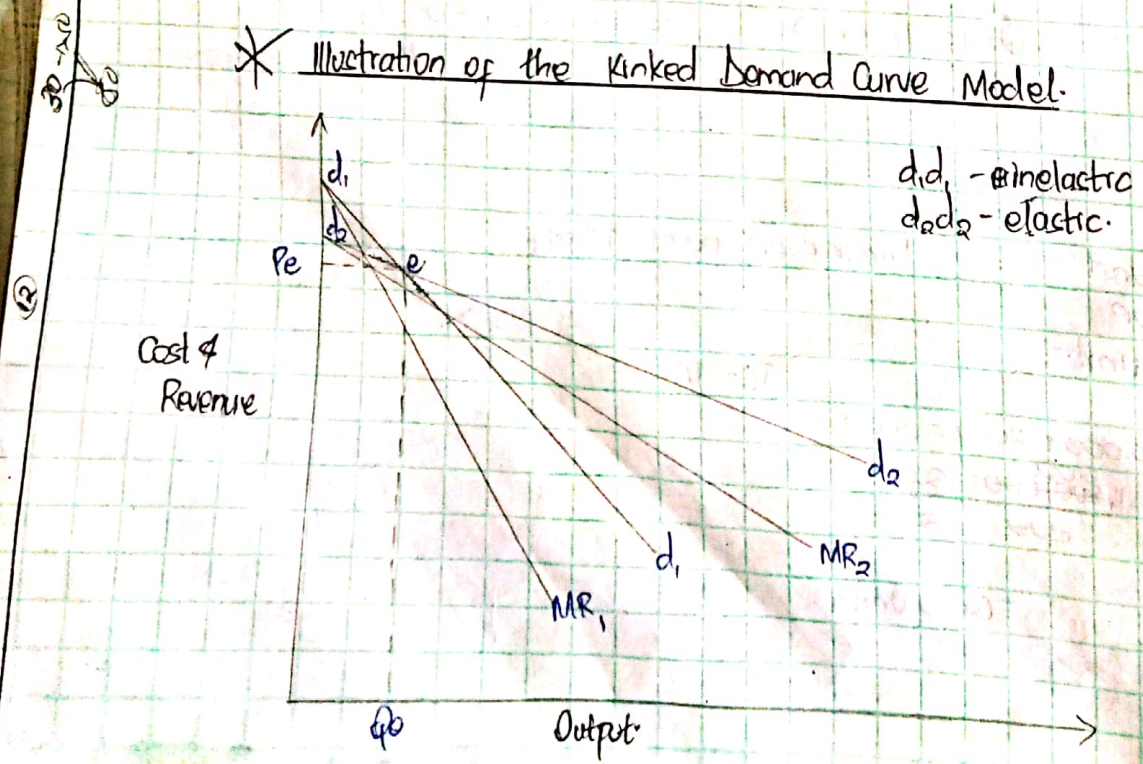 * Illustration of the Kinked Demand Curve Model.
d₁d₁ - inelactic
d₂d₂ - elastic.
d₁
d₂
Pe
e
12
Cost &
Revenue
d₂
MR₂
d₁
MR₁
Output.